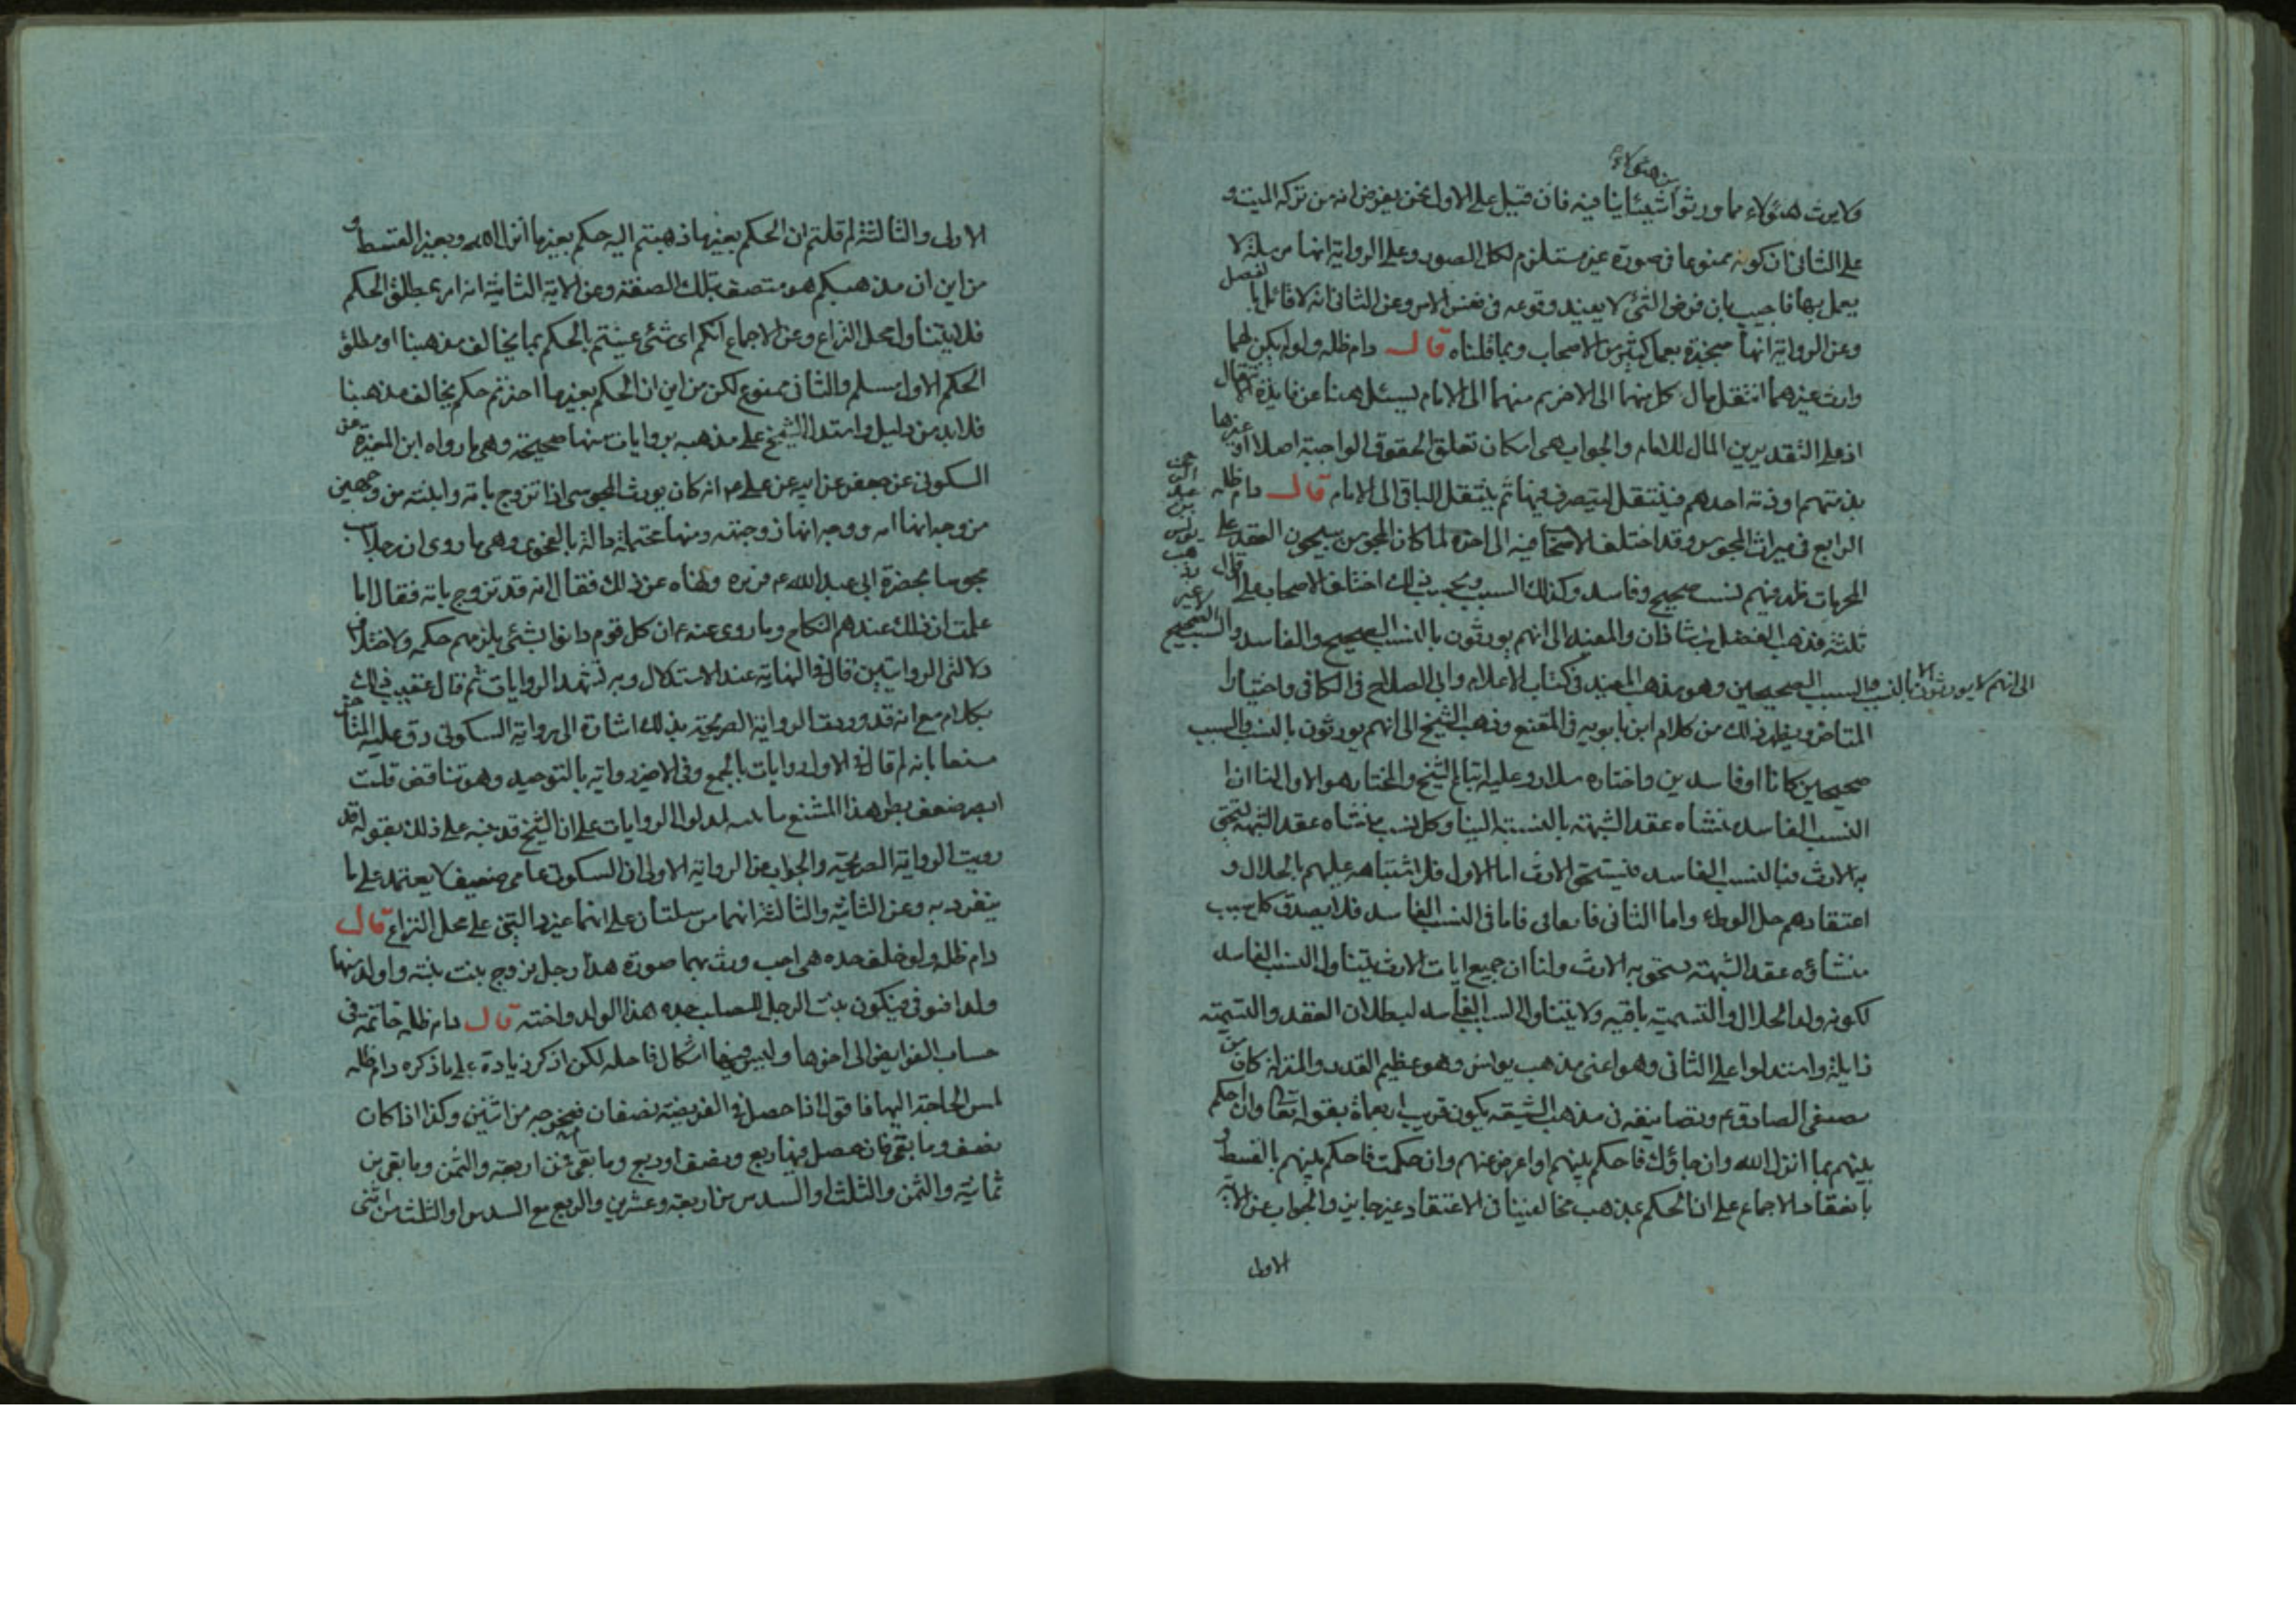 من هؤلاء
ولا يرث هؤلاء مما ورثوا شيئا ينافيه فان قيل على الاول نحن نفرض انه من تركه الميت و
على الثانى ان كونه ممنوعا فى صورة غير مستلزم لكل الصور وعلى الرواية انها مرسلة لا
يعمل بها فاجيب بان فرض الشئ لا يفيد وقوعه فى نفس الامر وعن الثانى انه لا قائل بالفصل
وعن الرواية انها منجبرة بعمل كثير من الاصحاب وبما قلناه قال دام ظله ولو لم يكن لهما
وارث غيرهما انتقل مال كل منهما الى الاخر ثم منهما الى الامام ليسئل هنا عن فايدة الانتقال
اذ على التقديرين المال للامام والجواب هى امكان تعلق الحقوق الواجبة اصلا او غيرها
بذمتهم او ذمة احدهم فينتقل ليتصرف فيها ثم ينتقل الباقى الى الامام قال دام ظله
الرابع فى ميراث المجوس وقد اختلف الاصحاب فيه الى اخره لما كان المجوس يبيحون العقد على
المحرمات ظهر فيهم نسب صحيح وفاسد وكذلك السبب وبحسب ذلك اختلف الاصحاب على اقوال
ثلثة فذهب الفضل بن شاذان والمفيد الى انهم يورثون بالنسب الصحيح والفاسد والسبب الصحيح
وذهب يونس بن عبد الرحمن
الى انهم لا يورثون الا بالنسب والسبب الصحيحين وهو مذهب المفيد فى كتاب الاعلام وابى الصلاح فى الكافى واختيار
المتاخر ويظهر ذلك من كلام ابن بابويه فى المقنع وذهب الشيخ الى انهم يورثون بالنسب والسبب
صحيحين كانا او فاسدين واختاره سلار وعليه اتباع الشيخ والمختار هو الاول لنا ان
النسب الفاسد منشاه عقد الشبهة بالنسبة الينا وكل نسب منشاه عقد الشبهة يستحق
به الارث فبالنسب الفاسد يستحق الارث اما الاول فلاشتباهه عليهم بالحلال و
اعتقادهم حل الوطى واما الثانى فاما فى النسب الفاسد فلا يصدق كل سبب
منشاؤه عقد الشبهة يستحق به الارث ولنا ان جميع ايات الارث يتناول النسب الفاسد
لكونه ولد الحلال والتسمية باقيه ولا يتناول السبب الفاسد لبطلان العقد والتسمية
زايلة واستدلوا على الثانى وهو اعنى مذهب يونس وهو عظيم القدر والمنزلة كان من
مصنفى الصادق ع وتصانيفه فى مذهب الشيعة يكون قريب اربعماة بقوله تعالى وان احكم
بينهم بما انزل الله وان جاؤك فاحكم بينهم او اعرض عنهم وان حكمت فاحكم بينهم بالقسط و
بانعقاد الاجماع على ان الحكم بمذهب مخالفينا فى الاعتقاد غير جايز والجواب عن الاية
الاولى
الاولى والثالثة لم قلتم ان الحكم بغير ما ذهبتم اليه حكم بغير ما انزل الله وبغير القسط و
من اين ان مذهبكم هو متصف بتلك الصفة وعن الاية الثانية انه امر بمطلق الحكم
فلا يتناول محل النزاع وعن الاجماع انكم اى شئ عنيتم بالحكم بما يخالف مذهبنا او مطلق
الحكم الاول مسلم والثانى ممنوع لكن من اين ان الحكم بغير ما اخترتم حكم يخالف مذهبنا
فلا بد من دليل واستدل الشيخ على مذهبه بروايات منها صحيحة وهى ما رواه ابن المغيرة عن
السكونى عن جعفر عن ابيه عن على ع انه كان يورث المجوسى اذا تزوج بامه وابنته من وجهين
من وجه انها امه ووجه انها زوجته ومنها محتملة دالة بالفحوى وهى ما روى ان رجلا سب
مجوسيا بحضرة ابى عبد الله ع فزبره ونهاه عن ذلك فقال انه قد تزوج بامه فقال اما
علمت ان ذلك عندهم النكاح وما روى عنه ع ان كل قوم دانوا بشئ يلزمهم حكمه
دلالتى الروايتين قال فى النهاية عند الاستدلال وبه تشهد الروايات ثم قال عقيب ذلك
بكلام مع انه قد رويت الرواية الصريحة بذلك اشارة الى رواية السكونى رد عليه المتاخر
مشنعا بانه لم قال فى الاول روايات بالجمع وفى الاخر رواية بالتوحيد وهو تناقض قلت
لمدلول الروايات على ان الشيخ قد نبه على ذلك بقوله قد
رويت الرواية الصريحة والجواب عن الرواية الاولى ان السكونى عامى ضعيف لا يعتمد على ما
ينفرد به وعن الثانية والثالثة انهما مرسلتان على انهما غير دالتين على محل النزاع قال
دام ظله ولو خلف جده هى اخت ورث بهما صورة هذا رجل تزوج بنت بنته واولد منها
ولدا فتوفى فيكون بنت الرجل للصلب جده هذا الولد واخته قال دام ظله خاتمة فى
حساب الفرايض الى اخرها وليس فيها اشكال فاحله لكن اذكر زيادة على ما ذكره دام ظله
لمس الحاجة اليها فاقول اذا حصل فى الفريضة نصفان فمخرجه من اثنين وكذا اذا كان
نصف وما بقى فان حصل فيها ربع ونصف او ربع وما بقى فمن اربعة والثمن وما بقى من
ثمانية والثمن والثلث او السدس من اربعة وعشرين والربع مع السدس او الثلث من اثنى